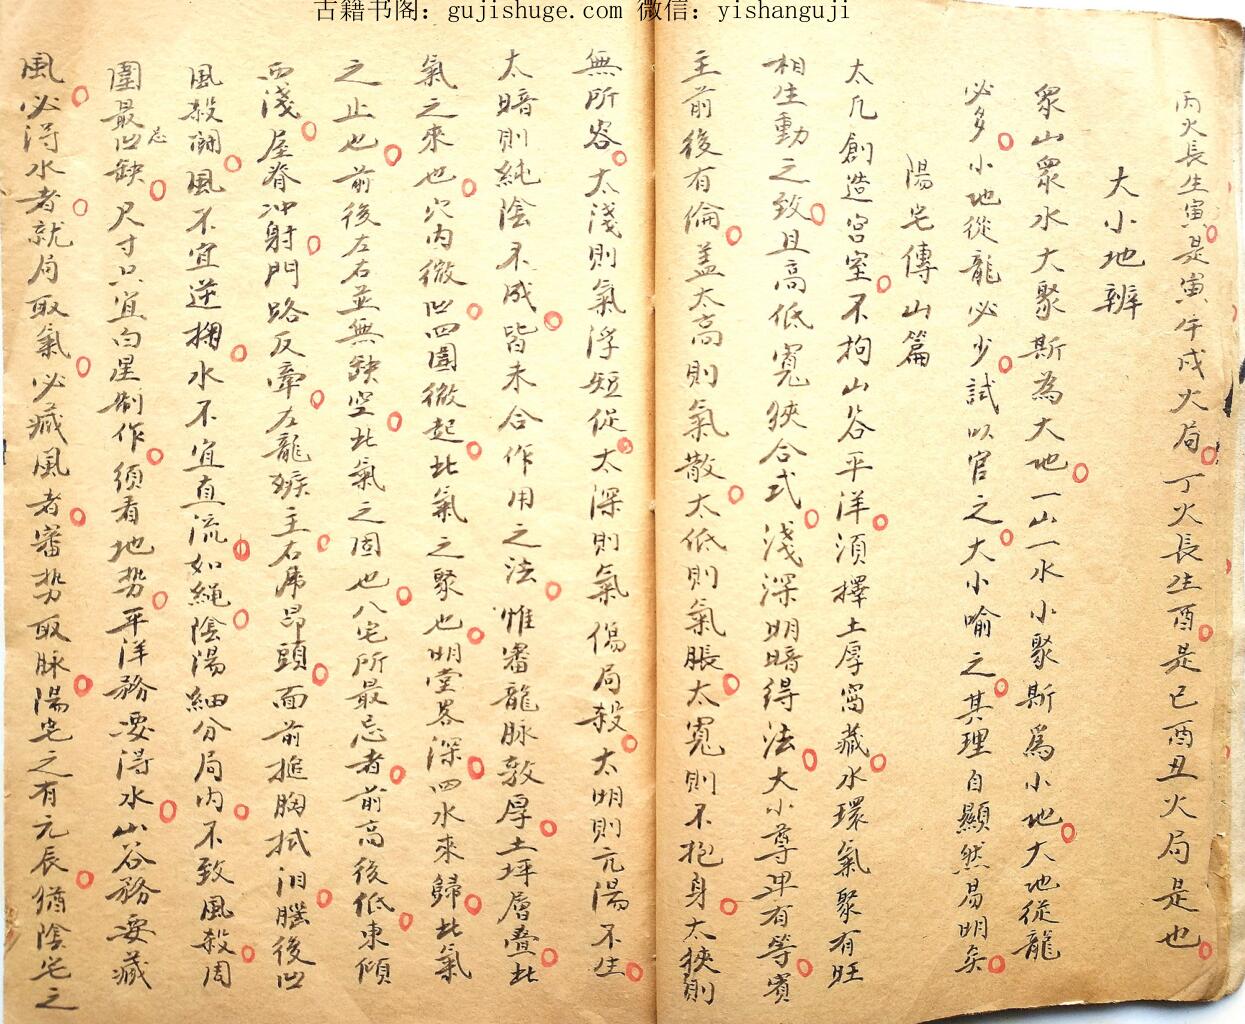 古籍书阁：gujishuge.com 微信：yishanguji
丙火長生寅是寅午戌火局丁火長生酉是巳酉丑火局是也
大小地辨
衆山衆水大聚斯為大地一山一水小聚斯爲小地大地從龍
必多小地從龍必少試以官之大小喻之其理自顯然易明矣
陽宅傳山篇
太凡創造宮室不拘山谷平洋須擇土厚窩藏水環氣聚有旺
相生動之致且高低寬狹合式淺深明暗得法大小尊卑有等賓
主前後有倫盖太高則氣散太低則氣脹太寬則不抱身太狹則
無所容太淺則氣浮短促太深則氣傷局殺太明則亢陽不生
太暗則純陰不成皆未合作用之法惟審龍脉敦厚土坪層叠此
氣之來也穴内微凹四圍微起此氣之聚也明堂畧深四水來歸此氣
之止也前後左右並無缺空此氣之固也八宅所最忌者前高後低東傾
西淺屋脊冲射門路反牽左龍嫉主右乕昂頭面前搥胸拭泪腦後凹
風殺閙風不宜逆掬水不宜直流如繩陰陽細分局内不致風殺周
圍最忌凹缺尺寸只宜白星制作須看地势平洋務要得水山谷務要藏
風必得水者就局取氣必藏風者審势取脉陽宅之有元辰猶陰宅之